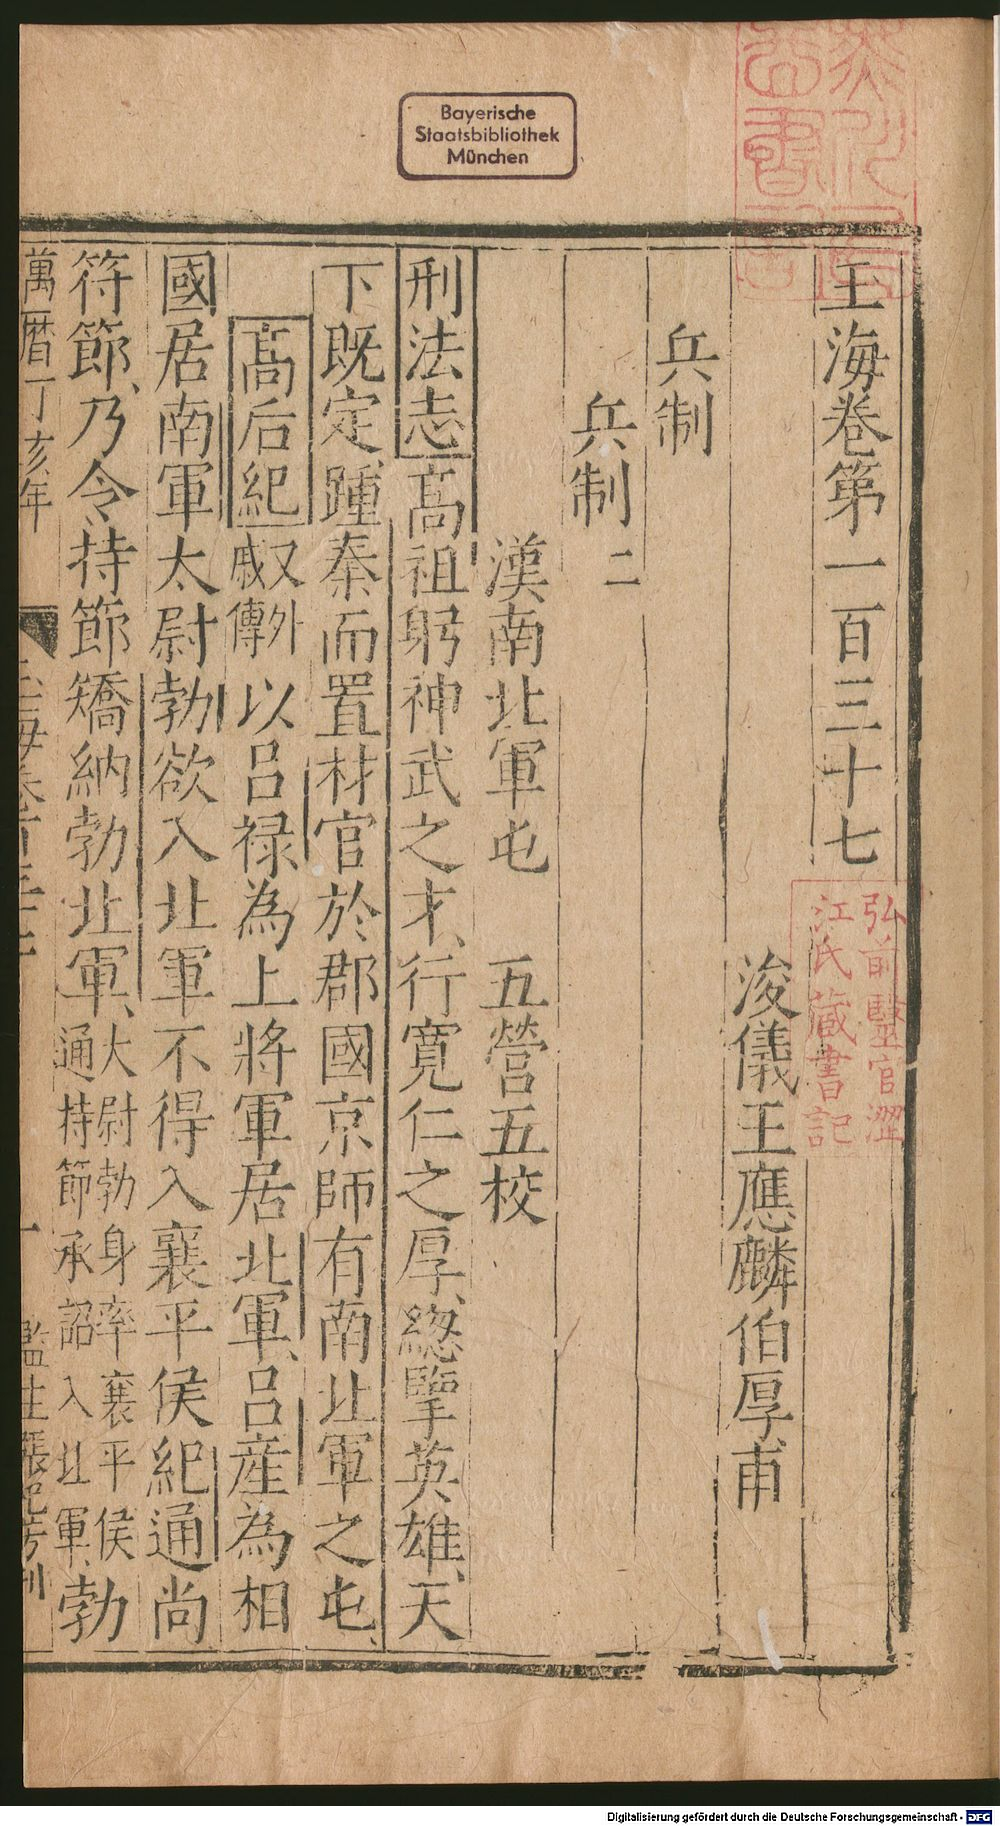 Bayerische
Staatsbibliothek
München
玉海卷第一百三十七
弘前醫官澀
江氏蔵書記
浚儀王應麟伯厚甫
兵制
兵制二
漢南北軍屯　五營五校
刑法志髙祖躬神武之才行寛仁之厚緫擥英雄天
下既定踵秦而置材官於郡國京師有南北軍之屯
髙后紀又外戚傳以吕禄為上將軍居北軍吕産為相
國居南軍太尉勃欲入北軍不得入襄平侯紀通尚
符節乃令持節矯納勃北軍大尉勃身率襄平侯通持節承詔入北軍勃
萬暦丁亥年
一
監生
刊
Digitalisierung gefördert durch die Deutsche Forschungsgemeinschaft - DFG